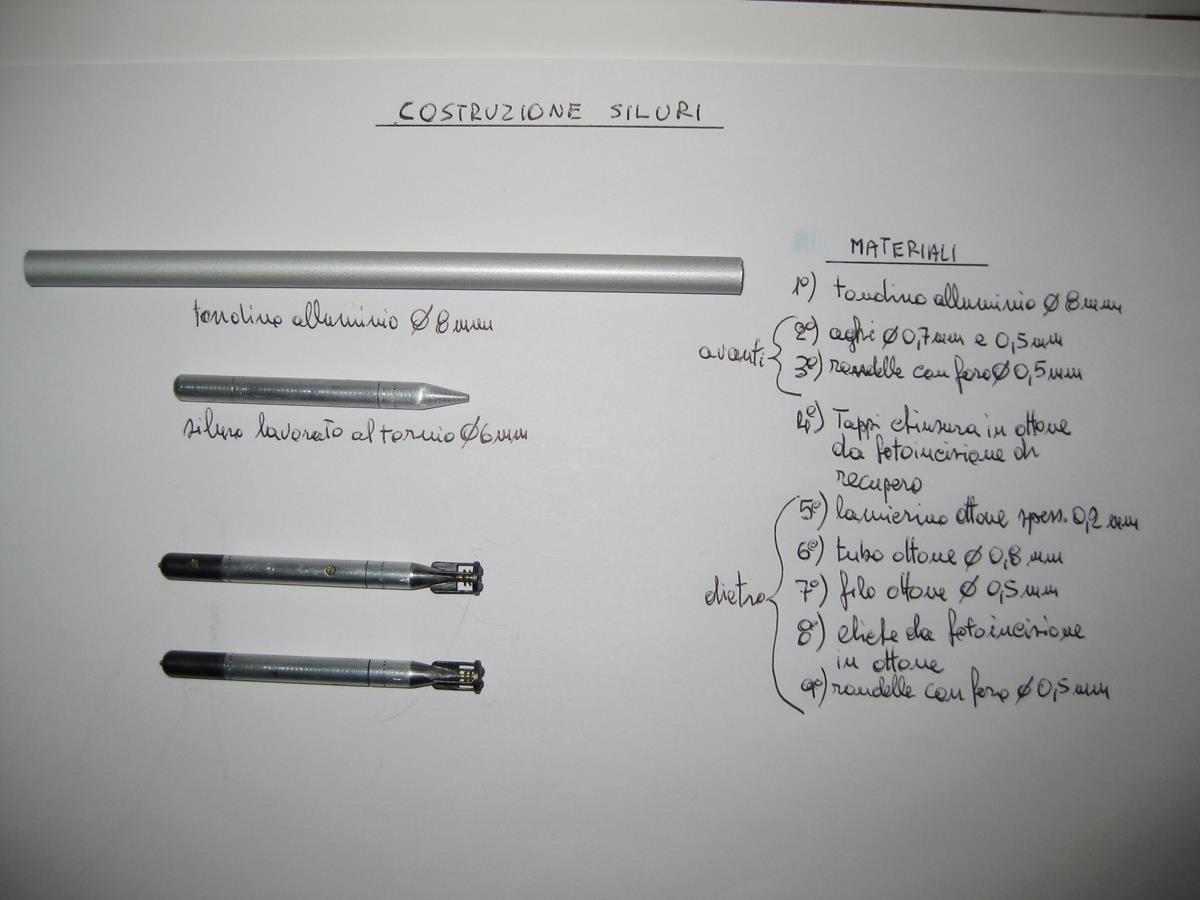 COSTRUZIONE SILURI
tondino alluminio Ø 8 mm
siluro lavorato al tornio Ø 6 mm
MATERIALI
1°) tondino alluminio Ø 8 mm
avanti
2°) aghi Ø 0,7 mm e 0,5 mm
3°) rondelle con foro Ø 0,5 mm
4°) Tappi chiusura in ottone
da fotoincisione di
recupero
dietro
5°) lamierino ottone spess. 0,2 mm
6°) tubo ottone Ø 0,8 mm
7°) filo ottone Ø 0,5 mm
8°) eliche da fotoincisione
in ottone
9°) rondelle con foro Ø 0,5 mm